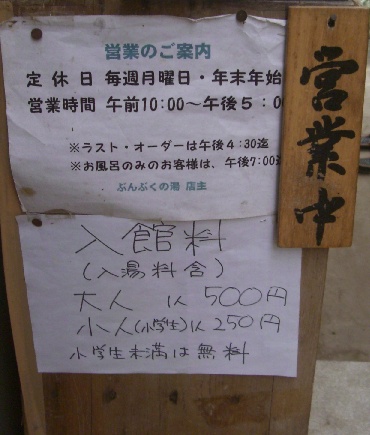 営業のご案内
定休日 毎週月曜日・年末年始
営業時間 午前10:00～午後5:0
※ラスト・オーダーは午後4:30迄
※お風呂のみのお客様は、午後7:00迄
ぶんぶくの湯 店主
営業中
入館料
(入湯料含)
大人 1人 500円
小人(小学生)1人 250円
小学生未満は無料